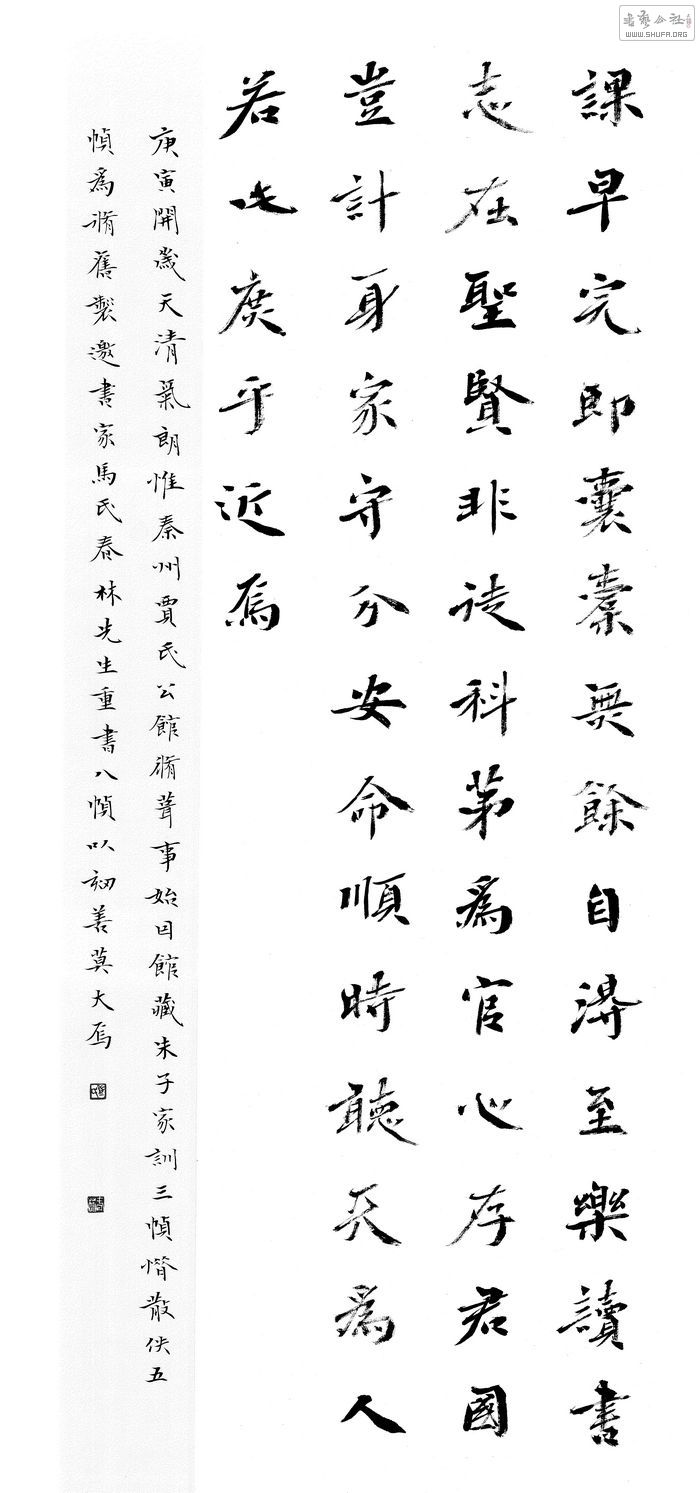 課早完即囊橐無餘自得至樂讀書
志在聖賢非徒科第為官心存君國
豈計身家守分安命順時聽天為人
若此庶乎近焉
庚寅開歲天清氣朗惟秦州賈氏公館脩葺事始因館藏朱子家訓三幀惜散佚五
幀為脩舊製邀書家馬氏春林先生重書八幀以初善莫大焉
書艺公社
WWW.SHUFA.ORG